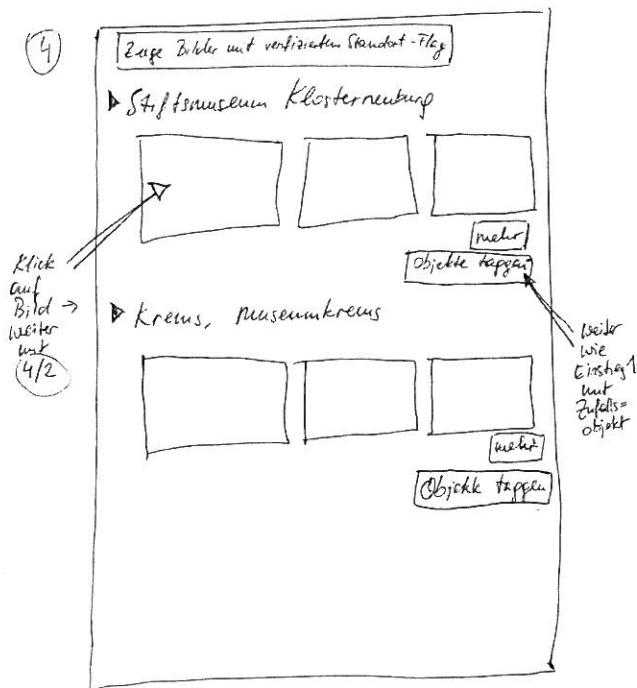 4
Zeige Bilder mit verifiziertem Standort-Flag
Stiftsmuseum Klosterneuburg
mehr
Objekte taggen
Klick
auf
Bild →
weiter
mit
4/2
Krems, museumkrems
weiter
wie
Einstieg 1
mit
Zufalls=
objekt
mehr
Objekte taggen